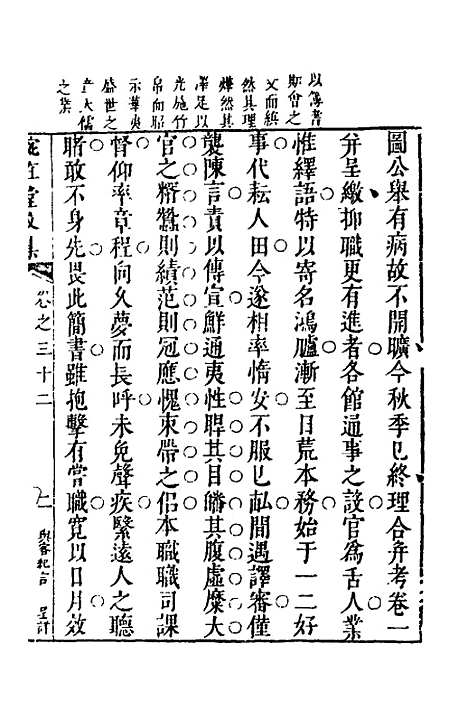 以籌著
斯會之
文而縝
然其理
燁然其
澤足以
光施竹
帛向昭
示華夷
盛世之
大儒
之業
圖公舉有病故不開曠今秋季已終理合弁考卷一
幷呈繳抑職更有進者各館通事之設官爲舌人業
惟繹語特以寄名鴻臚漸至日荒本務始于一二好
事代耘人田今遂相率惰安不服已畝間遇譯審僅
襲陳言責以傳宣鮮通夷性睅其目皤其腹虛糜大
官之糈蠶則績范則冠應愧束帶之侶本職職司課
督仰率章程向久夢而長呼未免聲疾緊遠人之聽
睹敢不身先畏此簡書雖抱擊有嘗職寛以日月效
堂集 卷之三十二 一 呈計